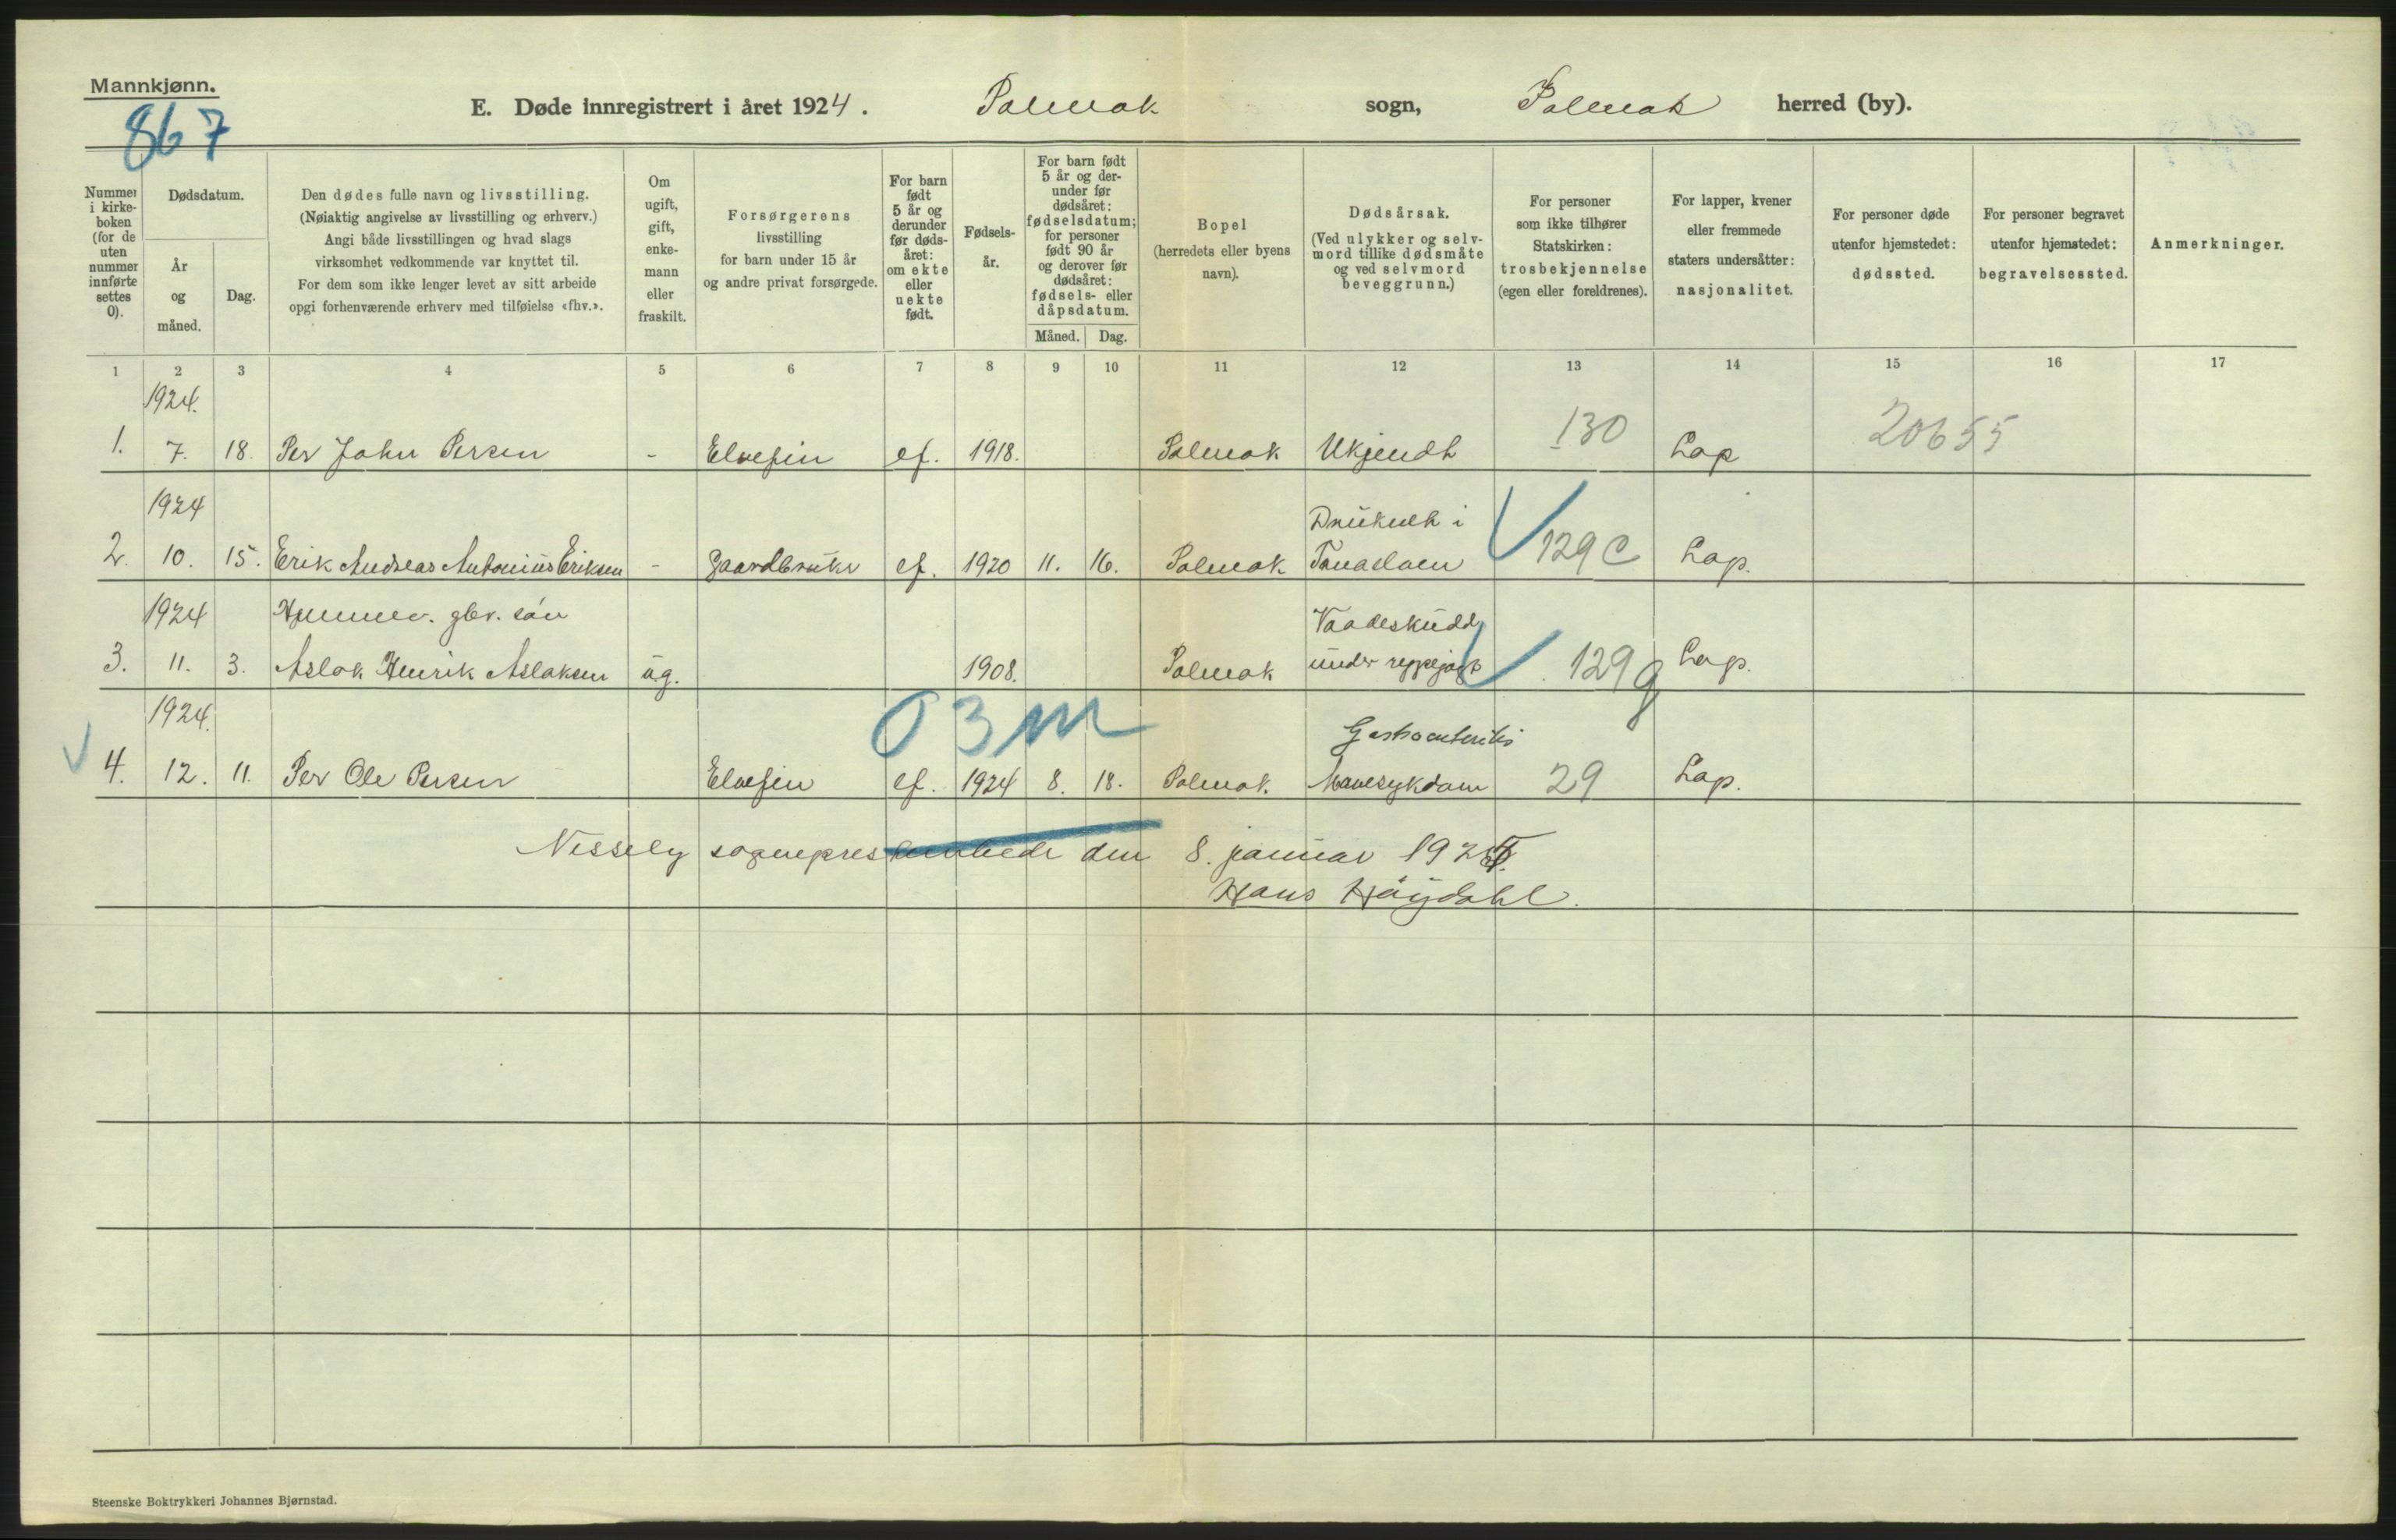 Mannkjønn.
867
E. Døde innregistrert i året 1924. Polmak sogn, Polmak herred (by).
Nummer i kirke-boken (for de uten nummer innførte settes 0).
Dødsdatum.
År og måned.
Dag.
Den dødes fulle navn og livsstilling.
(Nøiaktig angivelse av livsstilling og erhverv.)
Angi både livsstillingen og hvad slags
virksomhet vedkommende var knyttet til.
For dem som ikke lenger levet av sitt arbeide
opgi forhenværende erhverv med tilføielse «fhv.».
Om ugift, gift, enke-mann eller fraskilt.
Forsørgerens
livsstilling
for barn under 15 år
og andre privat forsørgede.
For barn født 5 år og derunder før døds-året: om ekte eller uekte født.
Fødsels-år.
For barn født 5 år og der-under før dødsåret: fødselsdatum; for personer født 90 år og derover før dødsåret: fødsels- eller dåpsdatum.
Måned. Dag.
Bopel
(herredets eller byens
navn).
Dødsårsak.
(Ved ulykker og selv-
mord tillike dødsmåte
og ved selvmord
beveggrunn.)
For personer
som ikke tilhører
Statskirken:
trosbekjennelse
(egen eller foreldrenes).
For lapper, kvener
eller fremmede
staters undersåtter:
nasjonalitet.
For personer døde
utenfor hjemstedet:
dødssted.
For personer begravet
utenfor hjemstedet:
begravelsessted.
Anmerkninger.
1 2 3 4 5 6 7 8 9 10 11 12 13 14 15 16 17
1924.
1. 7. 18. Per John Persen - Elvefin ef. 1918. Polmak Ukjendt 130 Lap 20655
1924 Druknet i
2. 10. 15. Erik Andreas Antonius Eriksen - Gaardbruker ef. 1920 11. 16. Polmak Tanaelven 129 c Lap.
1924 Hjemmev. gbr. søn Vaadeskudd
3. 11. 3. Aslak Henrik Aslaksen ug. 1908. Polmak under rypejagt 129 g Lap.
1924. 0 3 m Gastroenteritis
4. 12. 11. Per Ole Persen Elvefin ef. 1924 8. 18. Polmak. Mavesykdom 29 Lap.
Nesseby sogneprestembede den 8. januar 1925.
Hans Høydahl.
Steenske Boktrykkeri Johannes Bjørnstad.